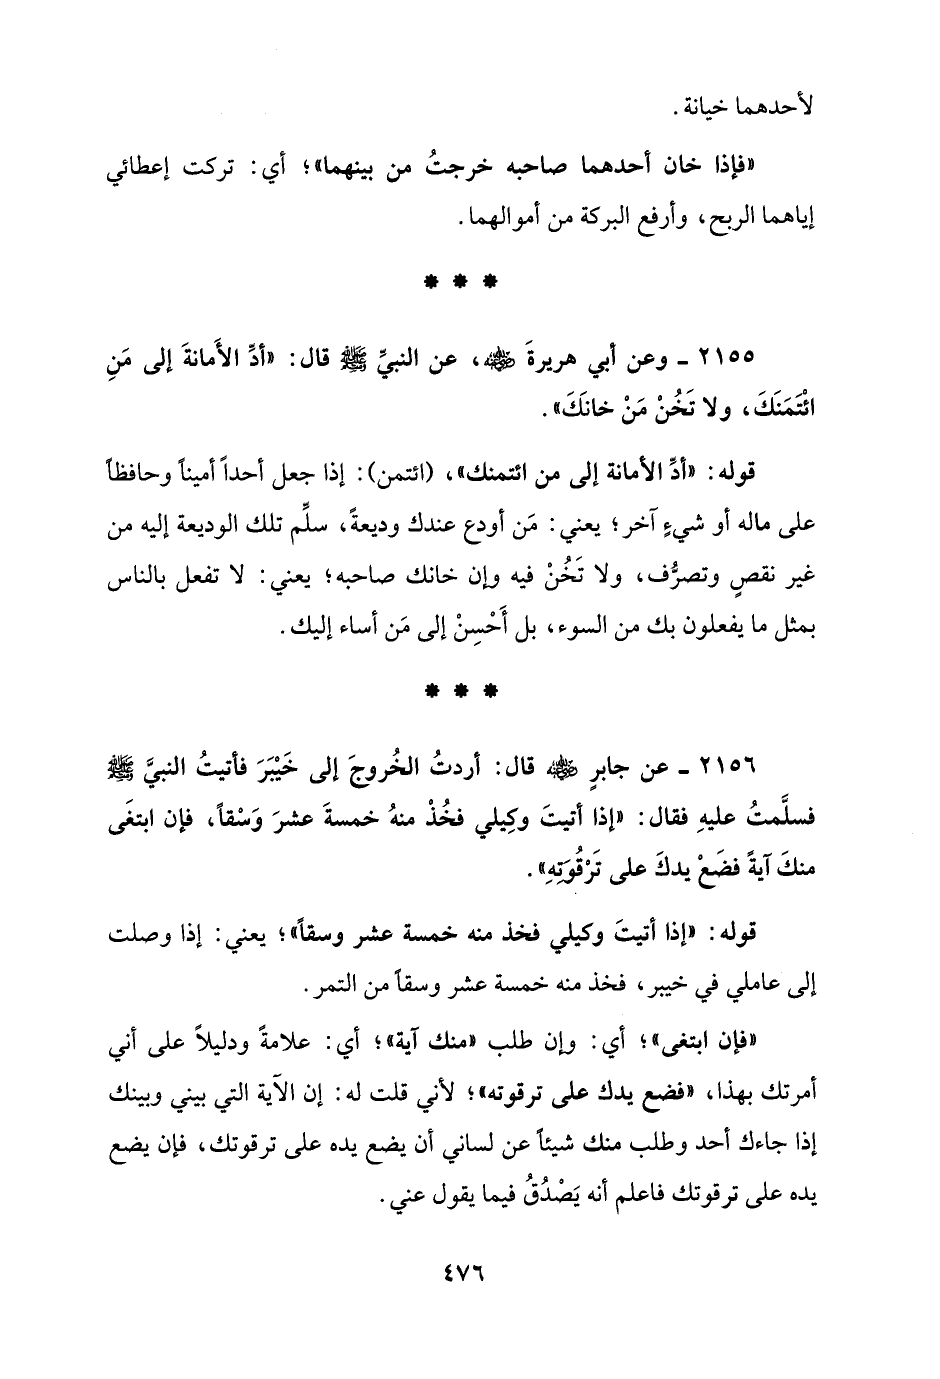 لأحدهما خيانة.
«فإذا خان أحدهما صاحبه خرجتُ من بينهما»؛ أي: تركت إعطائي
إياهما الربح، وأرفع البركة من أموالهما.
* * *
٢١٥٥ ـ وعن أبي هريرةَ ﵁، عن النبيِّ ﷺ قال: «أدِّ الأَمانةَ إلى مَنِ
ائْتَمَنَكَ، ولا تَخُنْ مَنْ خانَكَ».
قوله: «أدِّ الأمانة إلى من ائتمنك»، (ائتمن): إذا جعل أحداً أميناً وحافظاً
على ماله أو شيءٍ آخر؛ يعني: مَن أودع عندك وديعةً، سلِّم تلك الوديعة إليه من
غير نقصٍ وتصرُّف، ولا تَخُنْ فيه وإن خانك صاحبه؛ يعني: لا تفعل بالناس
بمثل ما يفعلون بك من السوء، بل أَحْسِنْ إلى مَن أساء إليك.
* * *
٢١٥٦ ـ عن جابرٍ ﵁ قال: أردتُ الخُروجَ إلى خَيْبَرَ فأتيتُ النبيَّ ﷺ
فسلَّمتُ عليهِ فقال: «إذا أتيتَ وكِيلي فخُذْ منهُ خمسةَ عشرَ وَسْقاً، فإن ابتغَى
منكَ آيةً فضَعْ يدكَ على تَرْقُوَتِهِ».
قوله: «إذا أتيتَ وكيلي فخذ منه خمسة عشر وسقاً»؛ يعني: إذا وصلت
إلى عاملي في خيبر، فخذ منه خمسة عشر وسقاً من التمر.
«فإن ابتغى»؛ أي: وإن طلب «منك آية»؛ أي: علامةً ودليلاً على أني
أمرتك بهذا، «فضع يدك على ترقوته»؛ لأني قلت له: إن الآية التي بيني وبينك
إذا جاءك أحد وطلب منك شيئاً عن لساني أن يضع يده على ترقوتك، فإن يضع
يده على ترقوتك فاعلم أنه يَصْدُقُ فيما يقول عني.
٤٧٦